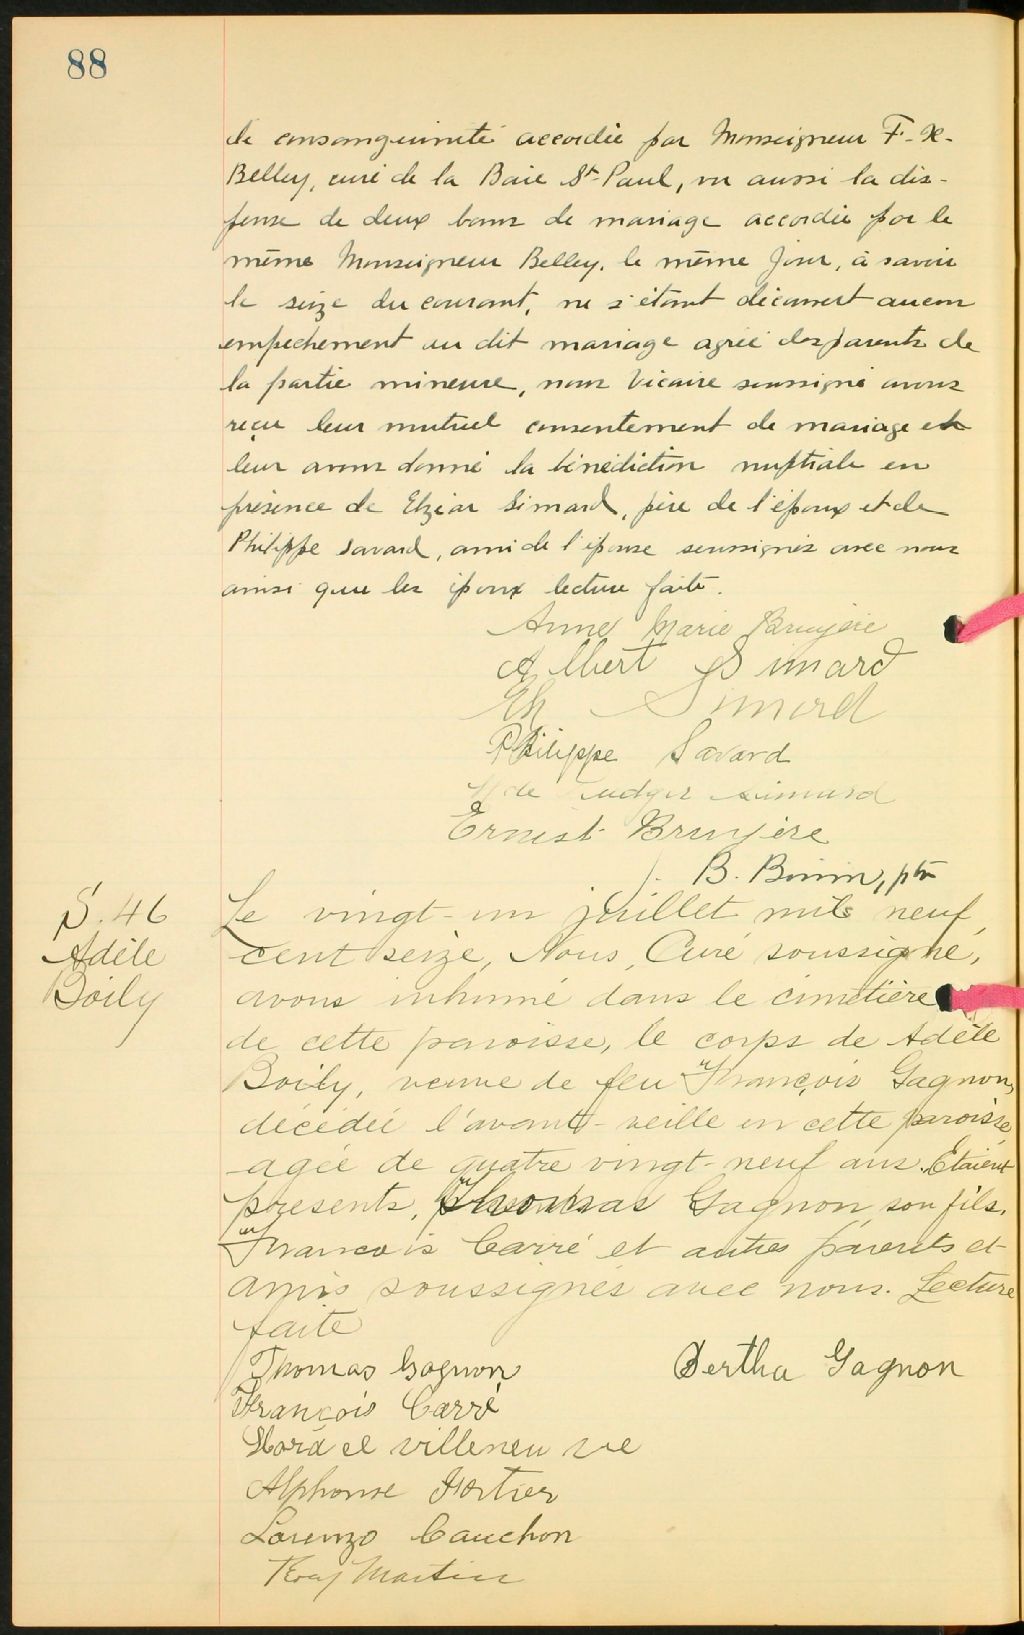 88
de consanguinité accordée par Monseigneur F-X-
Belley, curé de la Baie St-Paul, vu aussi la dis-
pense de deux bans de mariage accordée par le
même Monseigneur Belley, le même jour, à savoir
le seize du courant, ne s'étant découvert aucun
empêchement au dit mariage agréé des parents de
la partie mineure, nous Vicaire soussigné avons
reçu leur mutuel consentement de mariage et
leur avons donné la bénédiction nuptiale en
présence de Elzéar Simard, père de l'époux et de
Philippe Savard, ami de l'épouse soussignés avec nous
ainsi que les époux lecture faite.
Anne Marie Bruyère
Albert Simard
Elz Simard
Philippe Savard
Mde Eudger Simard
Ernest Bruyère
J. B. ptre
S. 46
Adèle
Boily
Le vingt-un juillet mil neuf
cent seize, Nous, Curé soussigné,
avons inhumé dans le cimetière
de cette paroisse, le corps de Adèle
Boily, veuve de feu François Gagnon,
décédée l'avant-veille en cette paroisse
agée de quatre vingt-neuf ans. Etaient
présents, Thomas Gagnon son fils,
François Carré et autres parents et
amis soussignés avec nous. Lecture
faite
Thomas Gagnon
Bertha Gagnon
François Carré
villeneuve
Alphonse Fortier
Lorenzo Cauchon
Martin